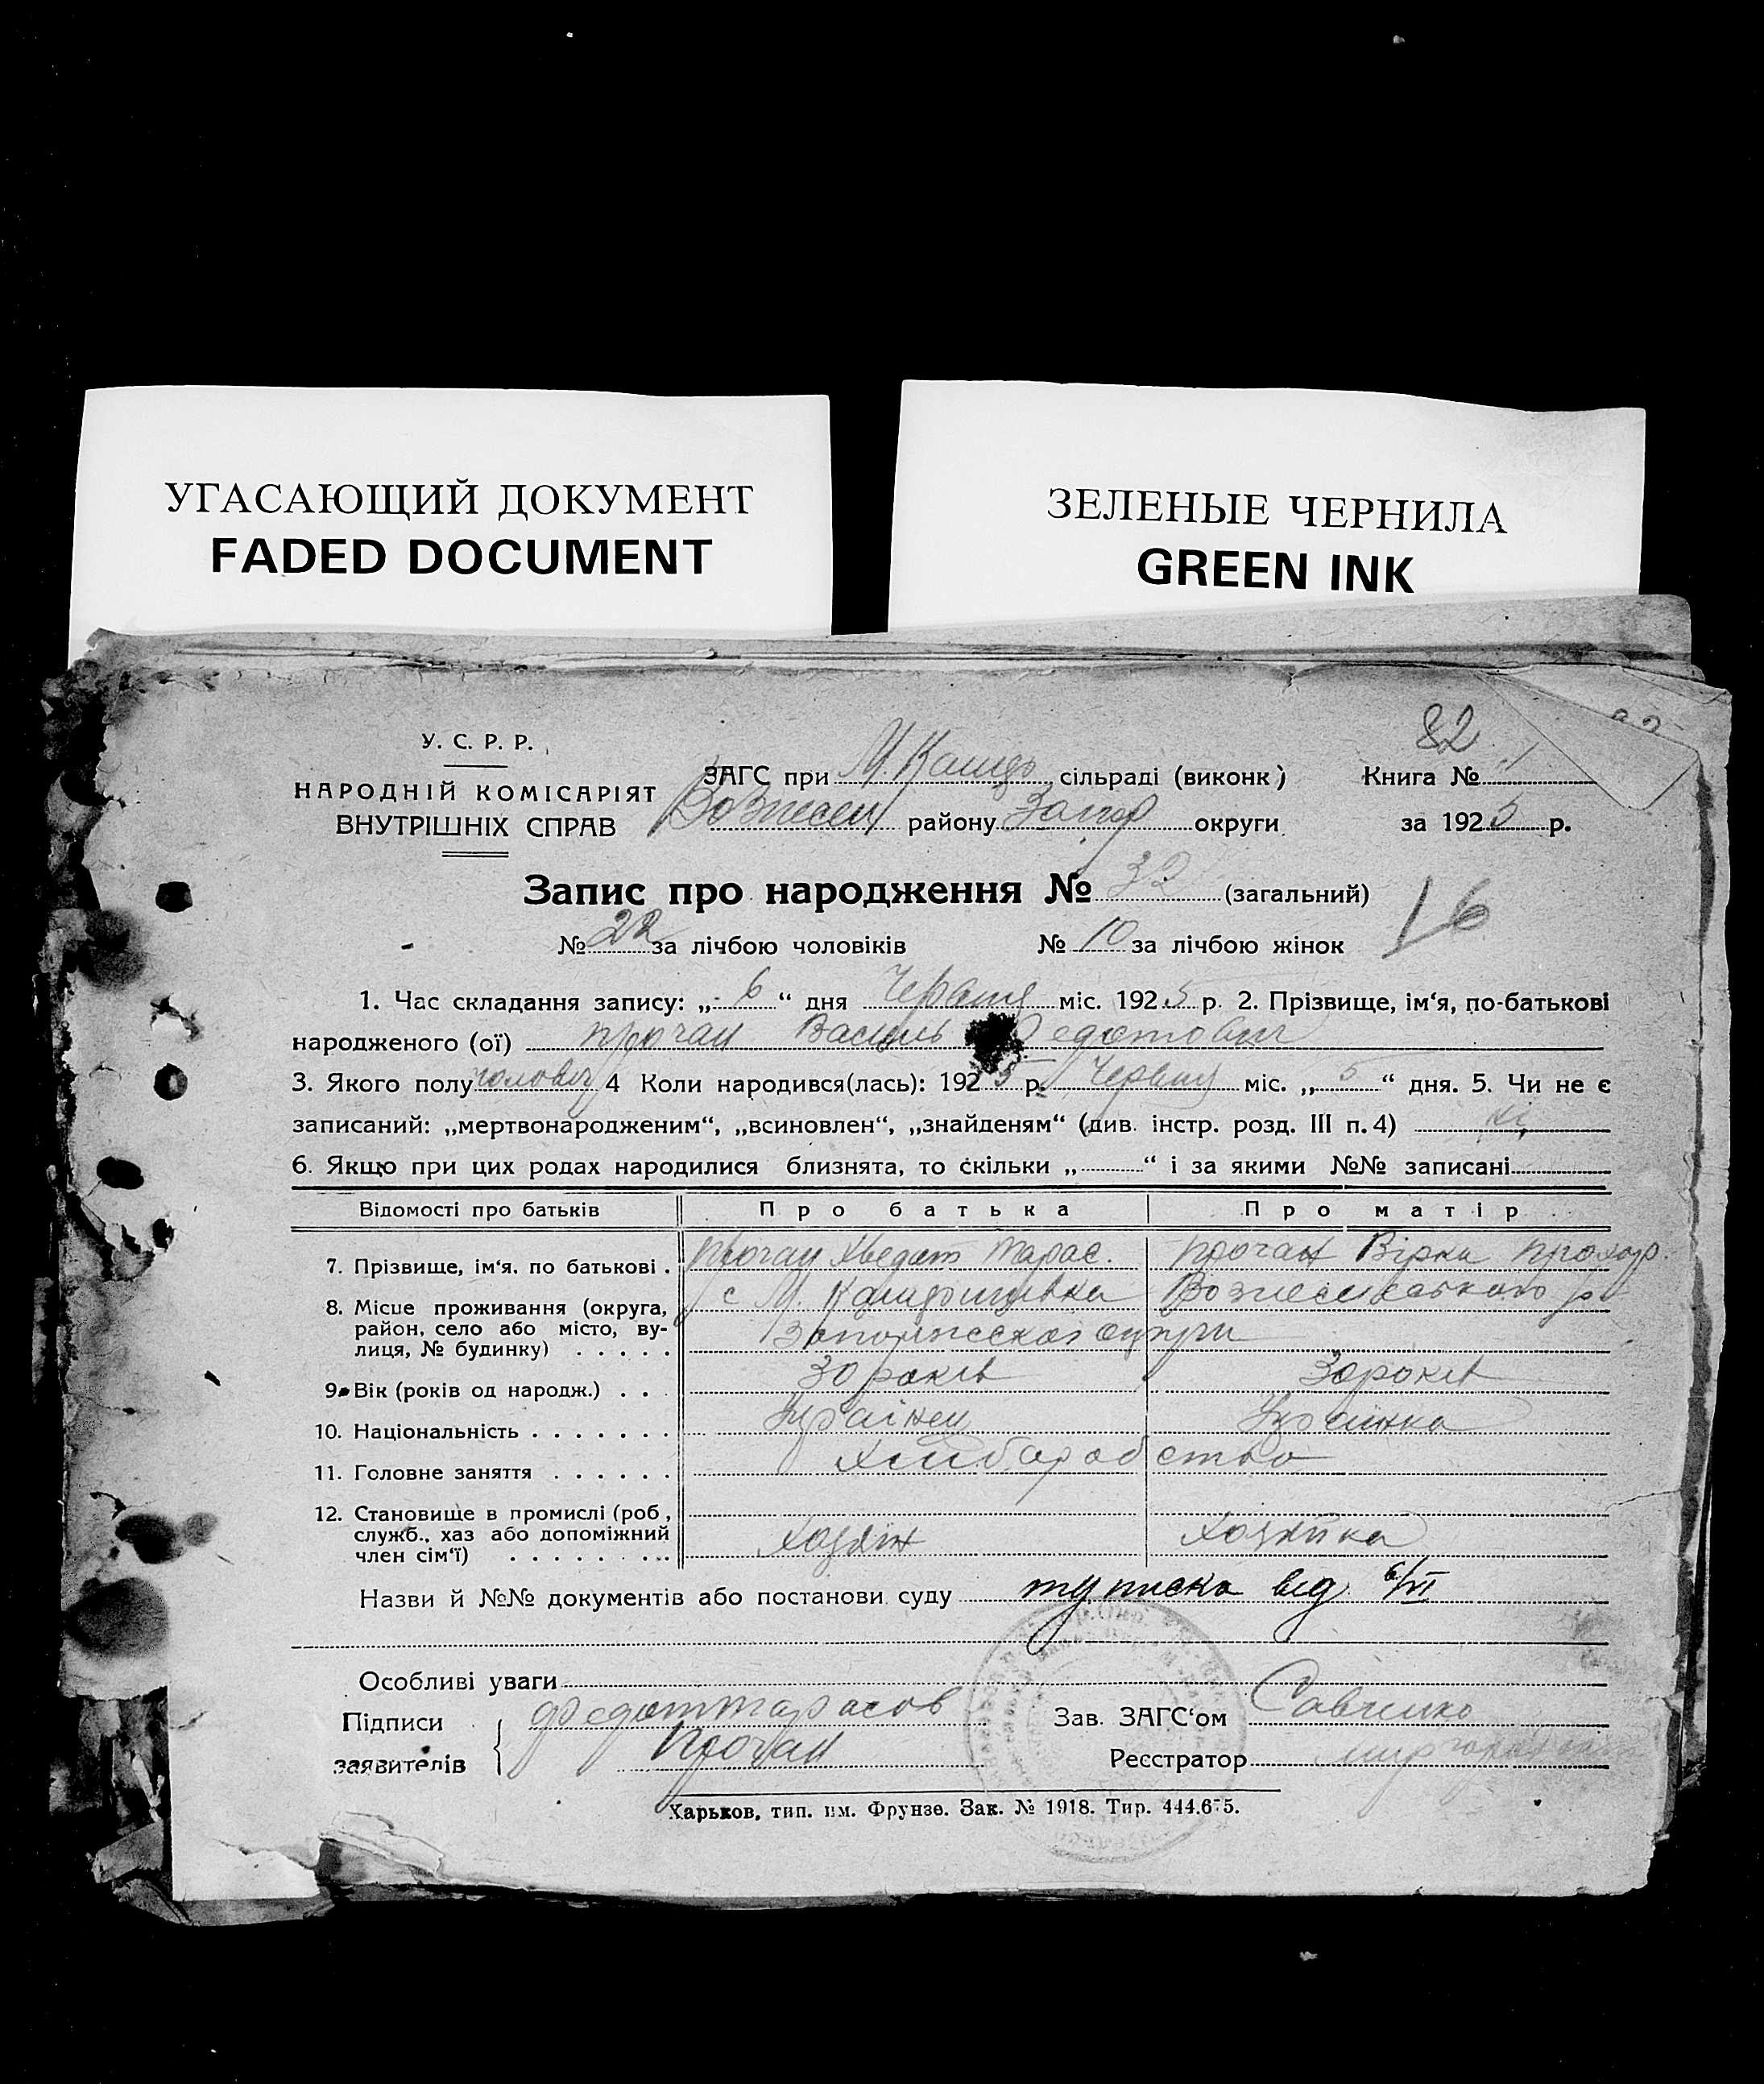 УГАСАЮЩИЙ ДОКУМЕНТ
FADED DOCUMENT
ЗЕЛЕНЫЕ ЧЕРНИЛА
GREEN INK
82
У. С. Р. Р.
НАРОДНІЙ КОМІСАРІЯТ
ВНУТРІШНІХ СПРАВ
ЗАГС при М. сільраді (виконк) Книга № 1
Вознесен району Запор округи за 1925 р.
Запис про народження № 32 (загальний)
16
№ 22 за лічбою чоловіків № 10 за лічбою жінок
1. Час складання запису: „ 6 “ дня Червня міс. 1925 р. 2. Прізвище, ім‘я, по-батькові
народженого (ої) прочан Василь едотович
3. Якого полу чоловіч 4 Коли народився(лась): 1925 р. Червня міс. „ 5 “ дня. 5. Чи не є
записаний: „мертвонародженим“, „всиновлен“, „знайденям“ (див. інстр. розд. III п. 4) ні
6. Якщо при цих родах народилися близнята, то скільки „ “ і за якими №№ записані
Відомості про батьків Про батька Про матір
7. Прізвище, ім‘я, по батькові . прочан Хведот Тарас. прочан Вірка прохор.
8. Місце проживання (округа, с М. Вознесенського р
район, село або місто, ву-
лиця, № будинку) . . . . . округи
9. Вік (років од народж.) . . . 30 років 30 років
10. Національність . . . . . . . Украінец Украінка
11. Головне заняття . . . . . . хлібаробство
12. Становище в промислі (роб,
служб., хаз або допоміжний
член сім‘ї) . . . . . . . . . Хозяін Хозяйка
Назви й №№ документів або постанови суду від 6/VI
Особливі уваги
Підписи Федот тарасов Зав. ЗАГС‘ом Савченко
заявителів Прочан Реєстратор
Харьков, тип. им. Фрунзе. Зак. № 1918. Тир. 444.675.